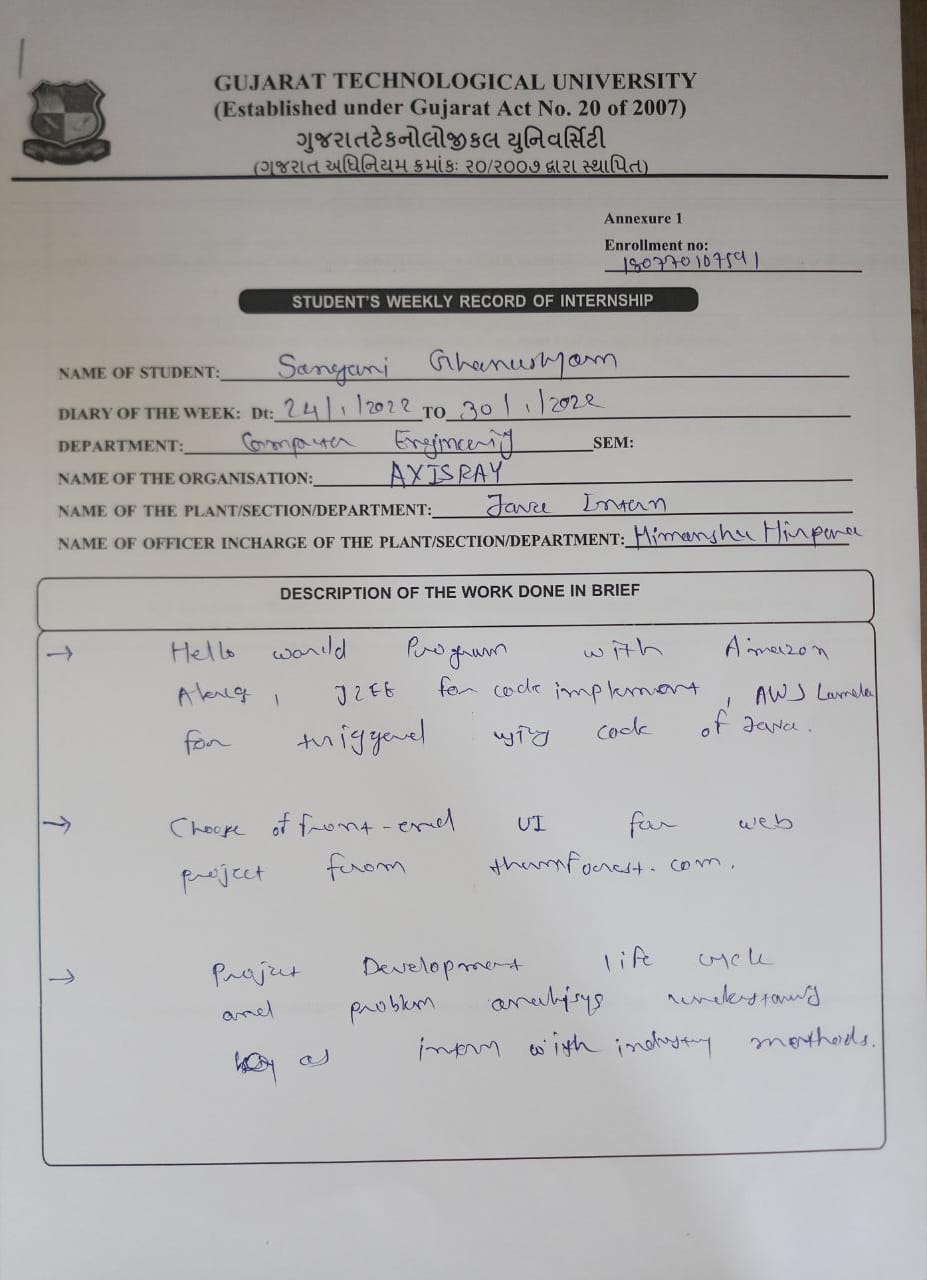 GUJARAT TECHNOLOGICAL UNIVERSITY
(Established under Gujarat Act No. 20 of 2007)
ગુજરાતટેકનોલોજીકલ યુનિવર્સિટી
(ગુજરાત અધિનિયમ ક્રમાંકઃ ૨૦/૨૦૦૭ દ્વારા સ્થાપિત)
Annexure 1
Enrollment no:
180770107591
STUDENT'S WEEKLY RECORD OF INTERNSHIP
NAME OF STUDENT: Sangani Ghanushyam
DIARY OF THE WEEK: Dt: 24/1/2022 TO 30/1/2022
DEPARTMENT: Computer Engineering SEM:
NAME OF THE ORGANISATION: AXISRAY
NAME OF THE PLANT/SECTION/DEPARTMENT: Java Intern
NAME OF OFFICER INCHARGE OF THE PLANT/SECTION/DEPARTMENT: Himanshu Hirpara
DESCRIPTION OF THE WORK DONE IN BRIEF
→ Hello world Program with Amazon
Alexa, J2EE for code implement, AWS Lamda
for triggered using code of Java.
→ Choose of front-end UI for web
project from themforest.com.
→ Project Development life cycle
and problem analysys understanding
as intern with industry methods.